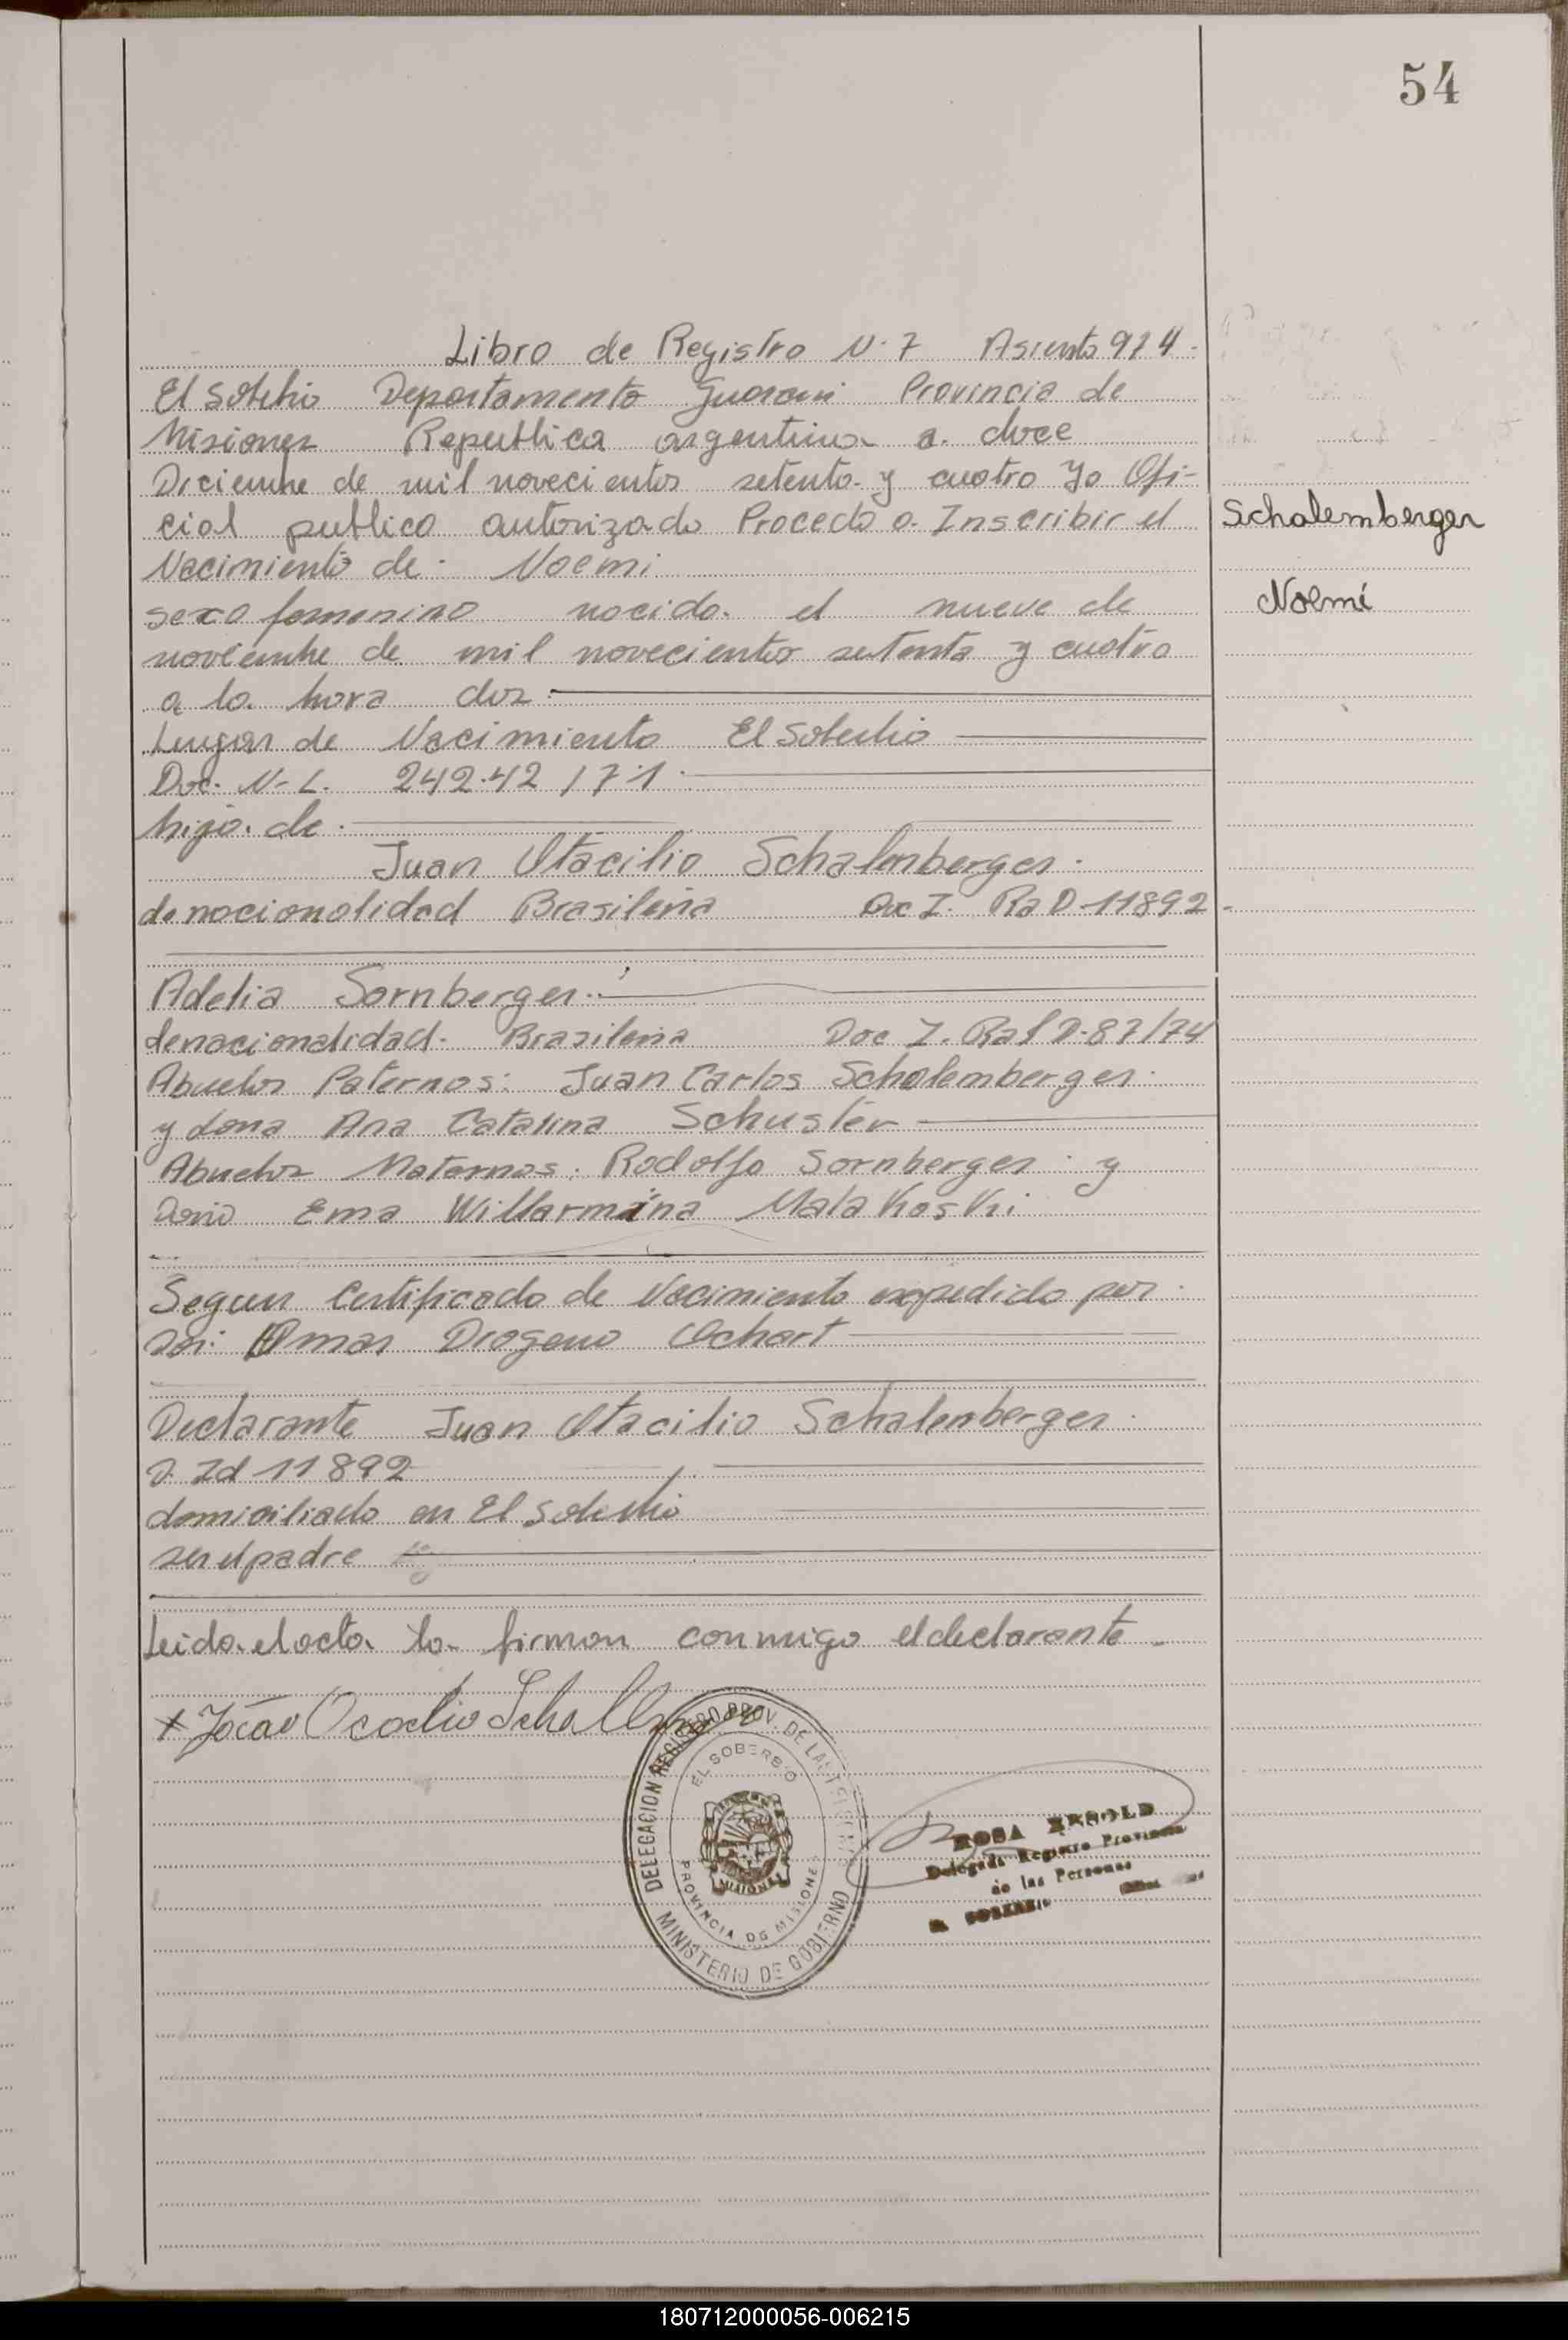 54
Libro de Registro N. 7 Asiento 914.
El Soberbio Departamento Guarani Provincia de
Misiones Republica argentina a doce
Diciembre de mil novecientos setenta y cuatro Yo Ofi-
cial publico autorizado Procedo a Inscribir el
Schalemberger
Nacimiento de. Noemi
sexo femenino nacida el nueve de
Noemí
noviembre de mil novecientos setenta y cuatro
a la hora dos
Lugar de Nacimiento El Soberbio
Doc. N-L. 242.42 / 71.
hija de.
Juan Otacilio Schalenberger.
de nacionalidad Brasileña Doc I. Ra D-11892-
Adelia Sornberger.
de nacionalidad. Brasileña Doc I. D-87/74
Abuelos Paternos: Juan Carlos Schalemberger.
y dona Ana Catalina Schuster
Abuelos Maternos: Rodolfo Sornberger y
Ema Willarmina Malakoski
Segun Certificado de Nacimiento expedido por.
Omar Diogeno Ochart
Declarante Juan Otacilio Schalenberger.
D. Id 11892
domiciliado en El Soberbio
ser el padre
Leida el acta la firman conmigo el declarante.
x João Schallenberger
DELEGACION REGISTRO PROV. DE LAS PERSONAS
EL SOBERBIO
MISIONES
PROVINCIA DE MISIONES
MINISTERIO DE GOBIERNO
ROSA ARNOLD
Delegada Registro Provincial
de las Personas
EL SOBERBIO
180712000056-006215